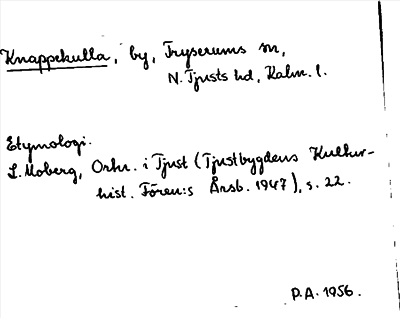 Knappekulla, by, Tryserums sn,
N. Tjusts hd, Kalm. l.
Etymologi.
L. Moberg, Ortn. i Tjust (Tjustbygdens Kultur-
hist. Fören:s Årsb. 1947), s. 22.
P.A. 1956.